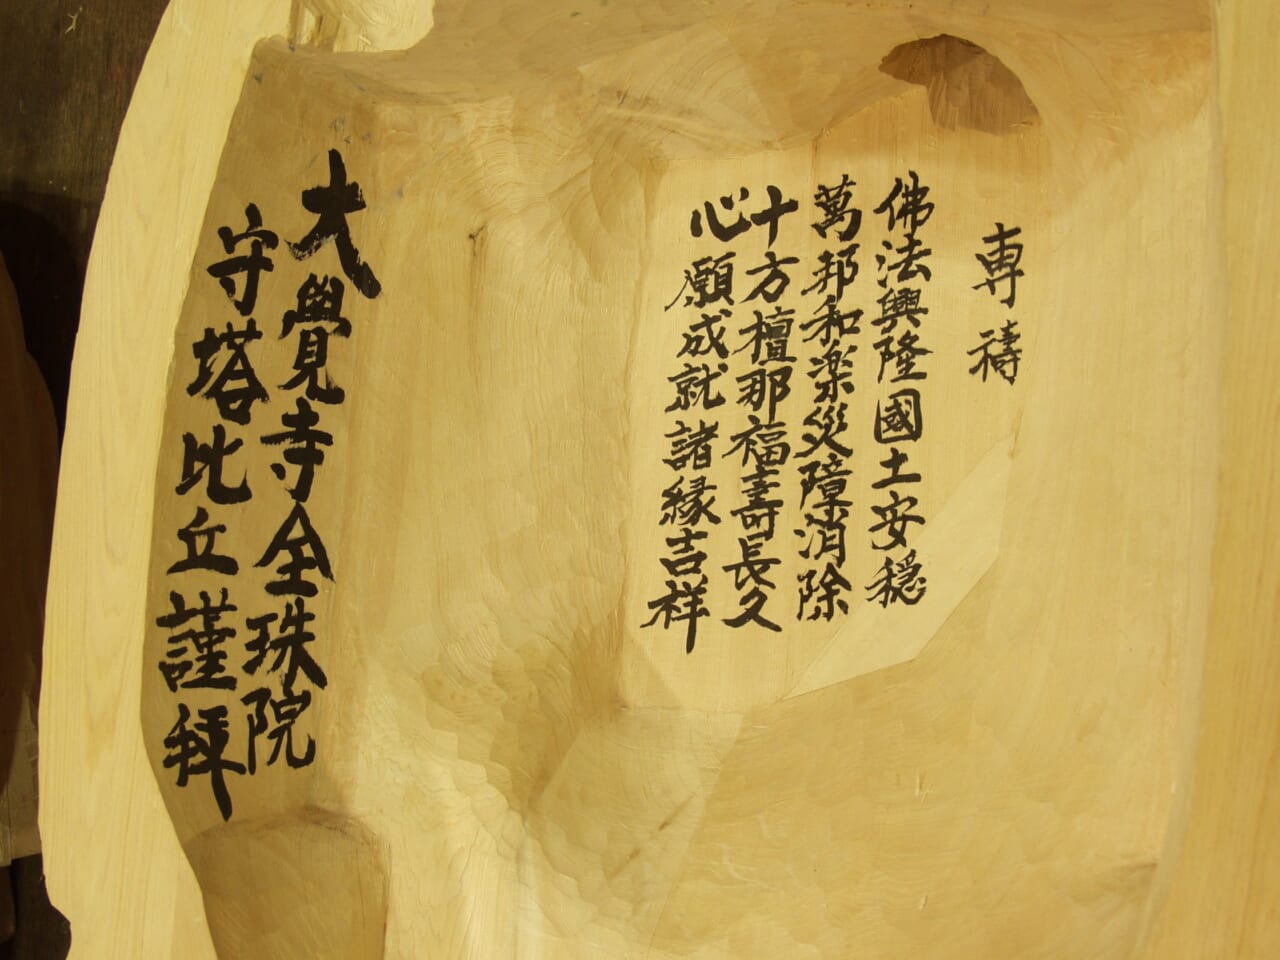 専禱
佛法興隆國土安穏
萬邦和楽災障消除
十方檀那福壽長久
心願成就諸縁吉祥
大覺寺金珠院
守塔比丘謹拜